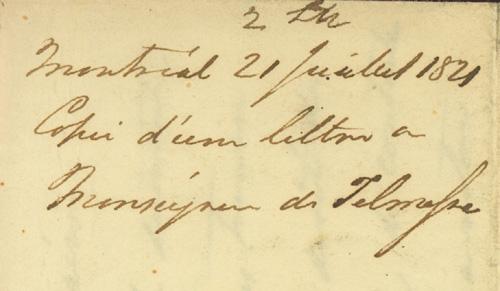 2
Montréal 21 Juillet 1821
Copie d'une lettre a
Monseigneur de Telmesse